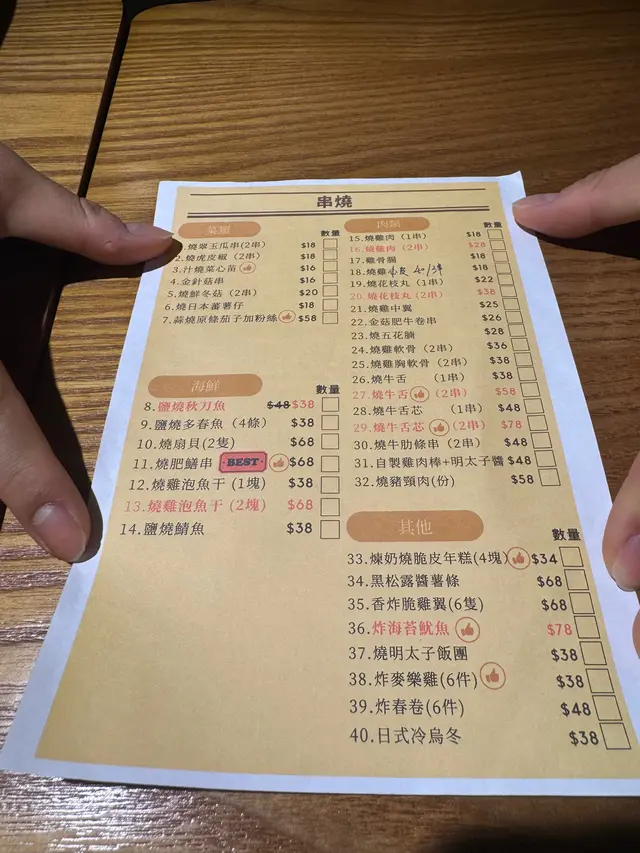 串燒
菜類
數量
1.燒翠玉瓜串(2串) $18
2.燒虎皮椒 (2串) $18
3.汁燒菜心苗 $16
4.金針菇串 $16
5.燒鮮冬菇 (2串) $20
6.燒日本蕃薯仔 $18
7.蒜燒原條茄子加粉絲 $58
海鮮
數量
8.鹽燒秋刀魚 $48 $38
9.鹽燒多春魚 (4條) $38
10.燒扇貝(2隻) $68
11.燒肥鱔串 BEST $68
12.燒雞泡魚干 (1塊) $38
13.燒雞泡魚干 (2塊) $68
14.鹽燒鯖魚 $38
肉類
數量
15.燒雞肉 (1串) $18
16.燒雞肉 (2串) $28
17.雞骨腸 $18
18.燒雞 $18
19.燒花枝丸 (1串) $22
20.燒花枝丸 (2串) $38
21.燒雞中翼 $25
22.金菇肥牛卷串 $26
23.燒五花腩 $28
24.燒雞軟骨 (2串) $36
25.燒雞胸軟骨 (2串) $38
26.燒牛舌 (1串) $38
27.燒牛舌 (2串) $58
28.燒牛舌芯 (1串) $48
29.燒牛舌芯 (2串) $78
30.燒牛肋條串 (2串) $48
31.自製雞肉棒+明太子醬 $48
32.燒豬頸肉(份) $58
其他
數量
33.煉奶燒脆皮年糕(4塊) $34
34.黑松露醬薯條 $68
35.香炸脆雞翼(6隻) $68
36.炸海苔魷魚 $78
37.燒明太子飯團 $38
38.炸麥樂雞(6件) $38
39.炸春卷(6件) $48
40.日式冷烏冬 $38